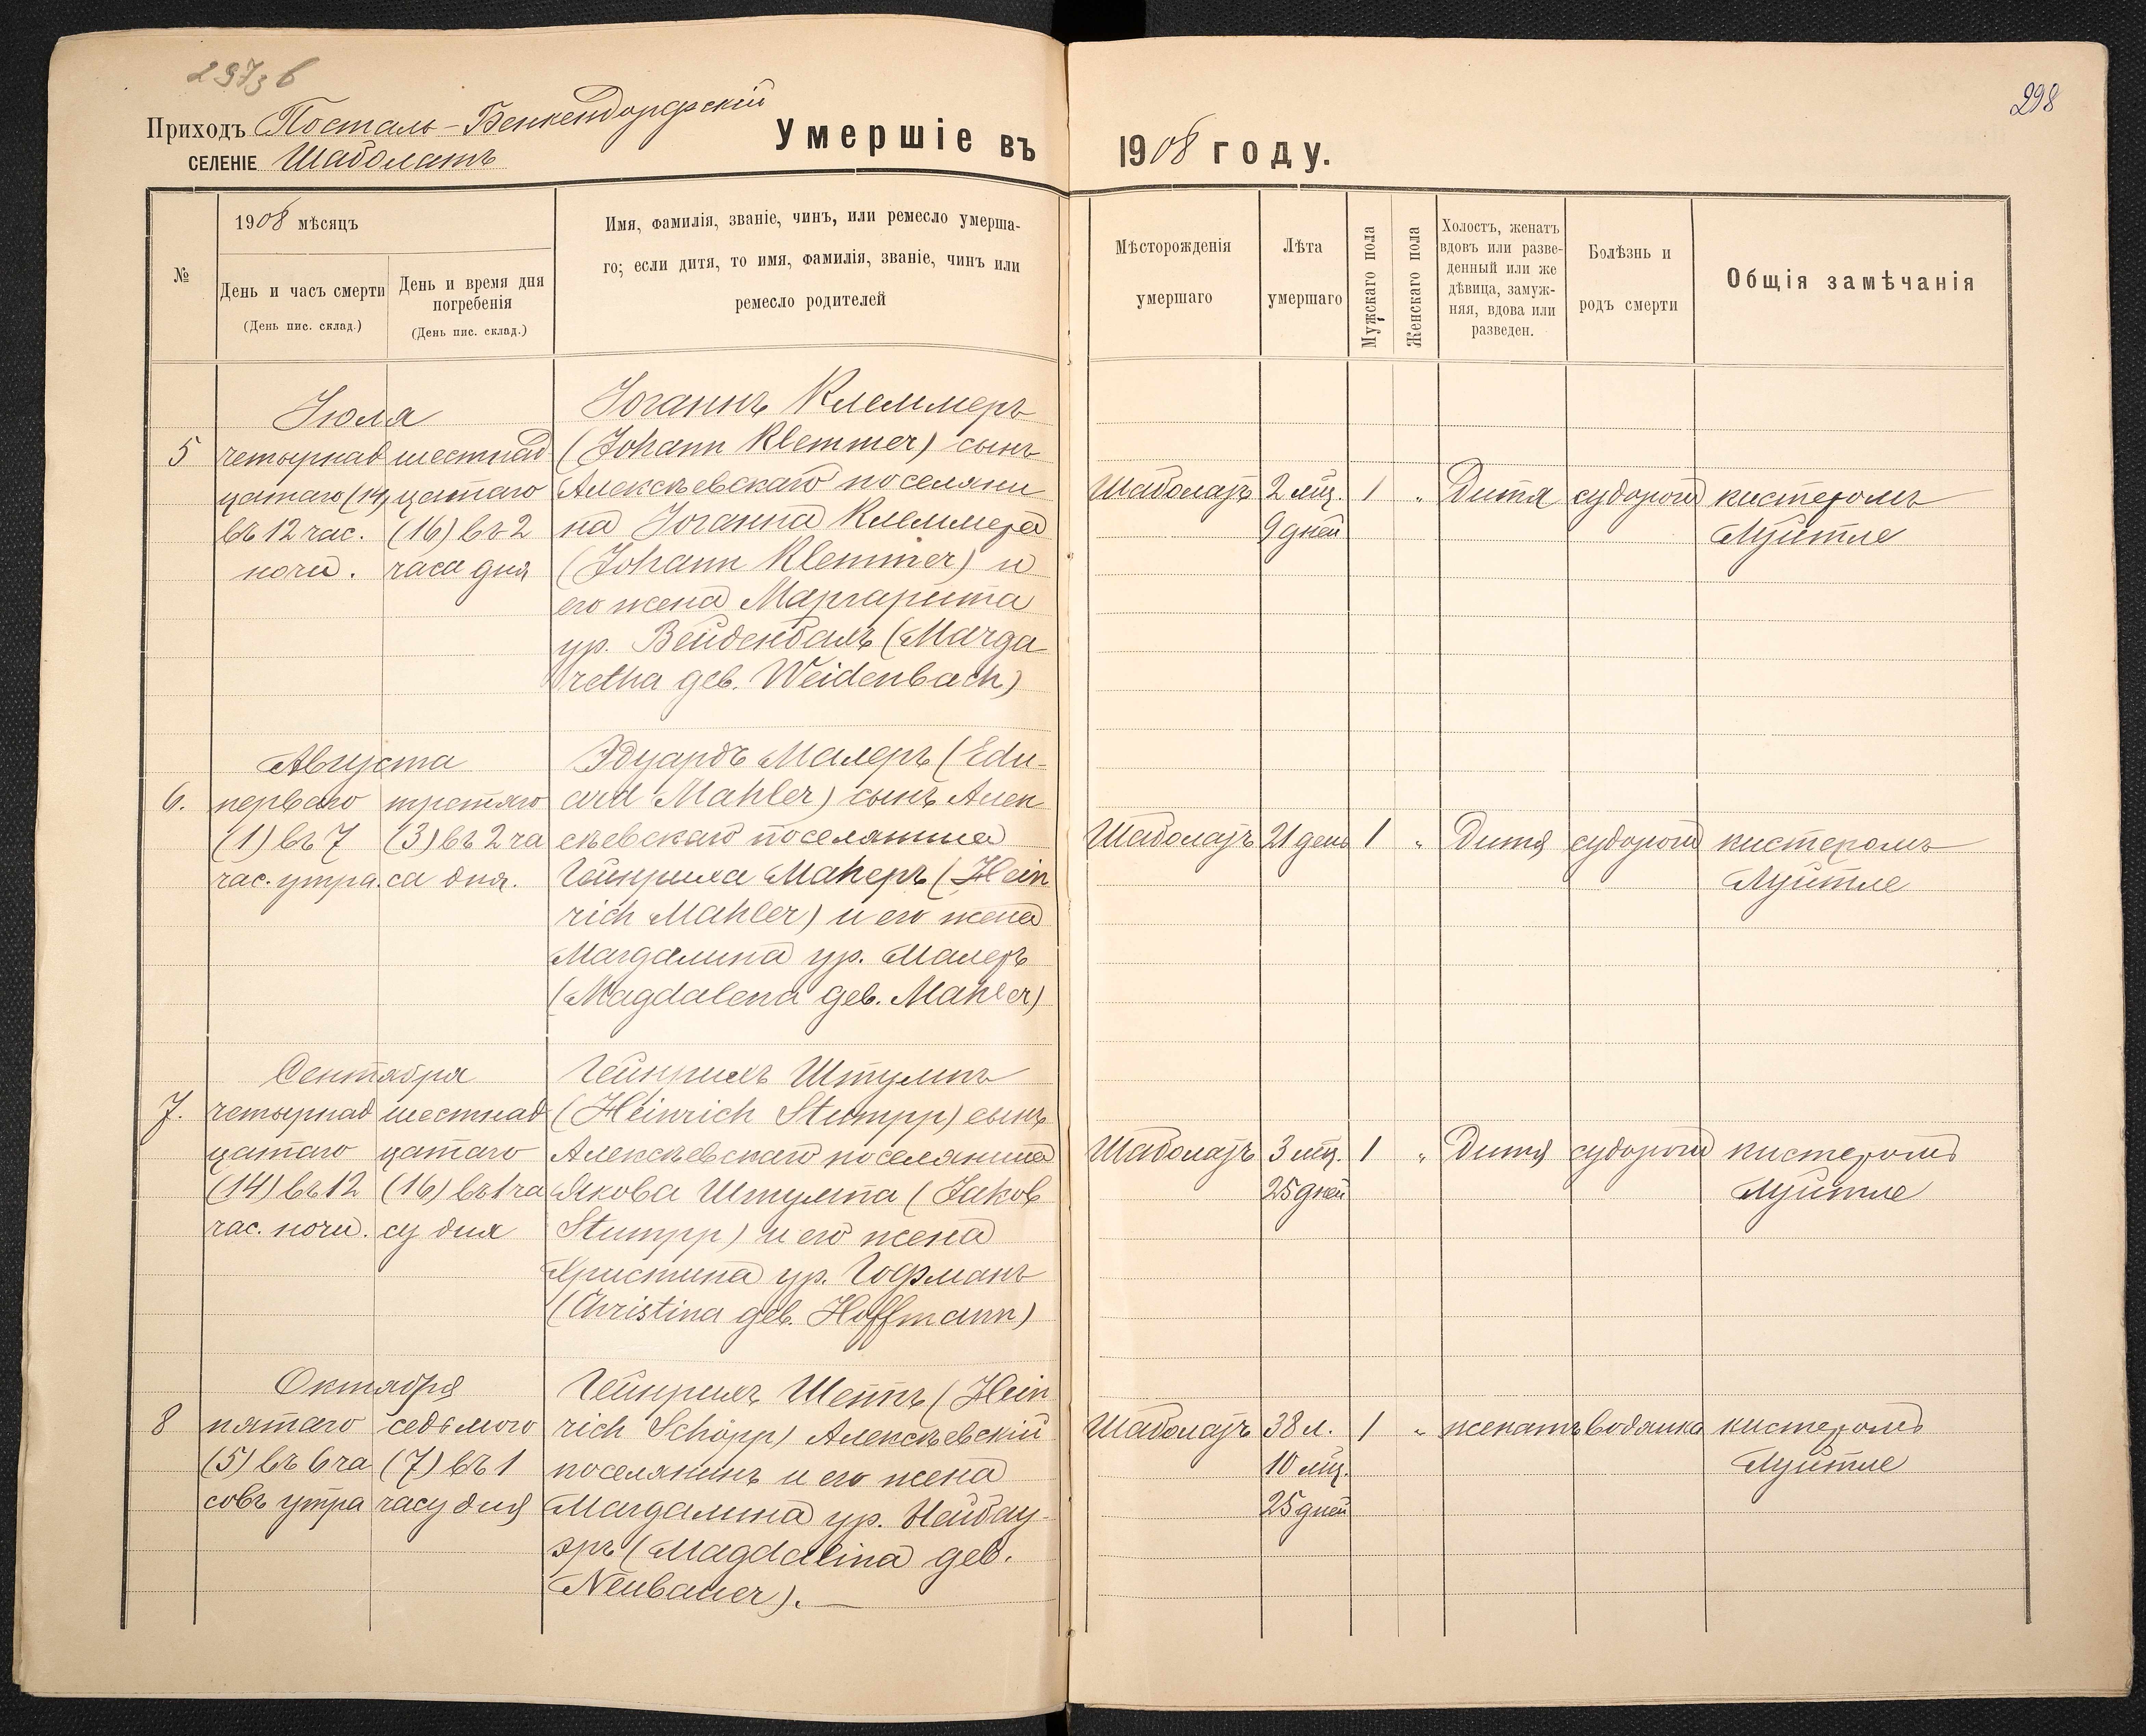 297з б
298
Приходъ Посталь-Бенкендорфскій
селеніе Шабалатъ
Умершіе въ
1908 году.
№
1908 мѣсяцъ
День и часъ смерти
(День пис. склад.)
День и время дня
погребенія
(День пис. склад.)
Имя, фамилія, званіе, чинъ, или ремесло умерша-
го; если дитя, то имя, фамилія, званіе, чинъ или
ремесло родителей
Мѣсторожденія
умершаго
Лѣта
умершаго
Мужскаго пола
Женскаго пола
Холостъ, женатъ
вдовъ или разве-
денный или же
дѣвица, замуж-
няя, вдова или
разведен.
Болѣзнь и
родъ смерти
Общія замѣчанія
5
Іюля
четырнад
цатаго (14)
въ 12 час.
ночи.
шестнад
цатаго
(16) въ 2
часа дня
Іоганнъ Клеммеръ
(Johann Klemmer) сынъ
Алексѣевскаго поселяни
на Іоганна Клеммера
(Johann Klemmer) и
его жена Маргарита
ур. Вейденбахъ (Marga
retha geb. Weidenbach)
Шаболатъ
2 мѣц.
9 дней
1
"
Дитя
судороги
кистеромъ
Лейтле
6.
Августа
перваго
(1) въ 7
час. утра.
третяго
(3) въ 2 ча
са дня.
Эдуардъ Малеръ (Edu-
ard Mahler) сынъ Алек
сѣевскаго поселянина
Гейнриха Малеръ (Hein
rich Mahler) и его жена
Магдалина ур. Малеръ
(Magdalena geb. Mahler)
Шаболатъ
21 день
1
"
Дитя
судороги
кистеромъ
Лейтле
7.
Сентября
четырнад
цатаго
(14) въ 12
час. ночи.
шестнад
цатаго
(16) въ 1 ча
су дня
Гейнрихъ Штумпъ
(Heinrich Stumpp) сынъ
Алексѣевскаго поселянина
Якова Штумпа (Jakob
Stumpp) и его жена
Христина ур. Гофманъ
(Christina geb. Hoffmann)
Шаболатъ
3 мѣц.
25 дней
1
"
Дитя
судороги
кистеромъ
Лейтле
8
Октября
пятаго
(5) въ 6 ча
совъ утра
седьмого
(7) въ 1
часу дня
Гейнрихъ Шеппъ (Hein
rich Schöpp) Алексѣевскій
поселянинъ и его жена
Магдалина ур. Нейбау-
эръ (Magdalina geb.
Neubauer).
Шаболатъ
38 л.
10 мѣц.
25 дней
1
"
женатъ
водянка
кистеромъ
Лейтле